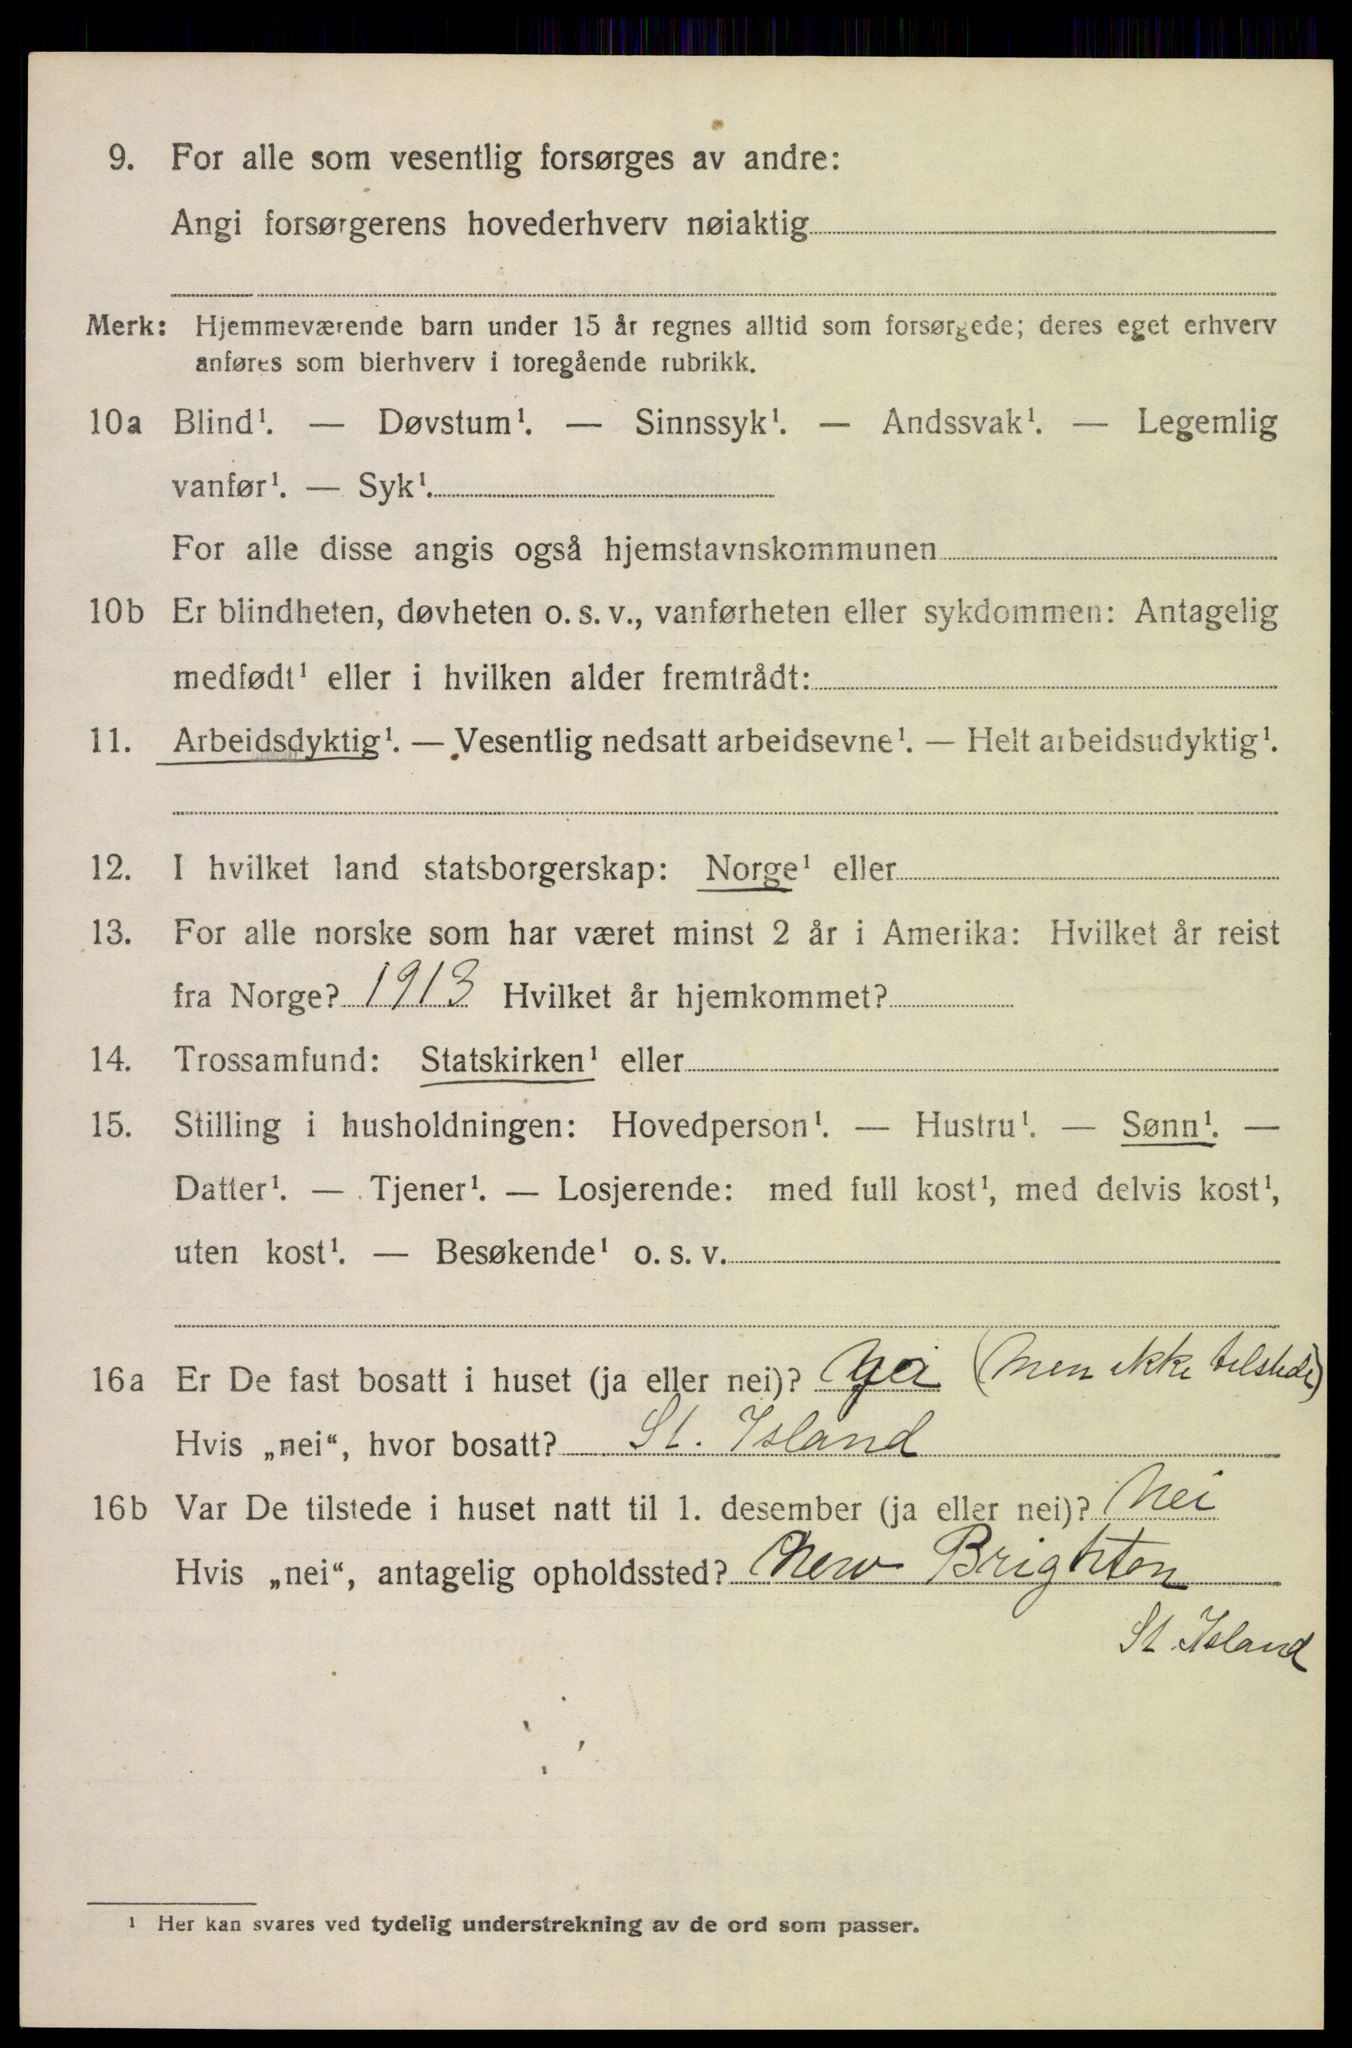 9. For alle som vesentlig forsørges av andre:
Angi forsørgerens hovederhverv nøiaktig
Merk: Hjemmeværende barn under 15 år regnes alltid som forsørgede; deres eget erhverv
anføres som bierhverv i foregående rubrikk.
10a Blind¹. — Døvstum¹. — Sinnssyk¹. — Andssvak¹. — Legemlig
vanfør¹. — Syk¹.
For alle disse angis også hjemstavnskommunen
10b Er blindheten, døvheten o. s. v., vanførheten eller sykdommen: Antagelig
medfødt¹ eller i hvilken alder fremtrådt:
11. Arbeidsdyktig¹. — Vesentlig nedsatt arbeidsevne¹. — Helt arbeidsudyktig¹.
12. I hvilket land statsborgerskap: Norge¹ eller
13. For alle norske som har været minst 2 år i Amerika: Hvilket år reist
fra Norge? 1913 Hvilket år hjemkommet?
14. Trossamfund: Statskirken¹ eller
15. Stilling i husholdningen: Hovedperson¹. — Hustru¹. — Sønn¹. —
Datter¹. — Tjener¹. — Losjerende: med full kost¹, med delvis kost¹,
uten kost¹. — Besøkende¹ o. s. v.
16a Er De fast bosatt i huset (ja eller nei)? (Men ikke tilstede)
Hvis „nei“, hvor bosatt? St. Island
16b Var De tilstede i huset natt til 1. desember (ja eller nei)? Nei
Hvis „nei“, antagelig opholdssted? New Brighton
St. Island
¹ Her kan svares ved tydelig understrekning av de ord som passer.